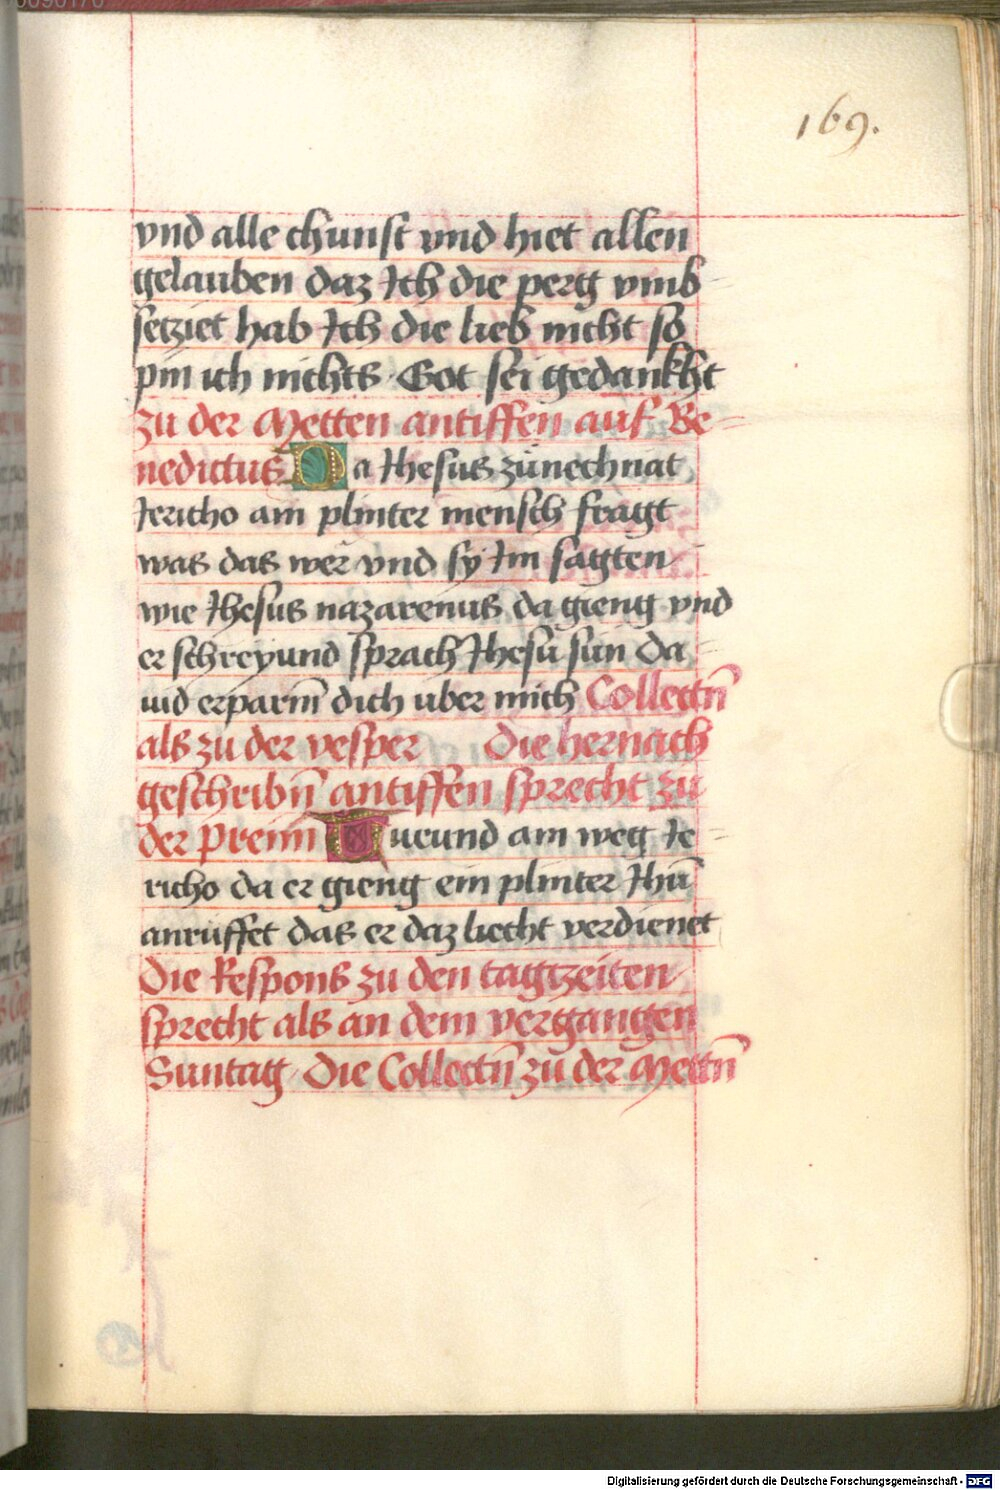 169.
vnd alle chunst vnd hiet allen
gelauben daz Ich die perg vmb
setziet hab Ich die lieb nicht so
pin ich nichts. Got sei gedankht
zu der Metten antiffen auf Be
nedictus Da Ihesus zunechnat
Jericho ain plinter mensch fragt
was das wer vnd sy Im sagten
wie Ihesus nazarenus da gieng vnd
er schreyund sprach Ihesu sun Da
uid erparm̄ dich uber mich Collectn̄
als zu der vesper Die hernach
geschribn̄ antiffen sprecht zu
der Preim am weg Je
richo da er gieng ein plinter Ihū
anruffet das er daz liecht verdienet
Die Respons zu den tagtzeiten
sprecht als an dem vergangen
Suntag Die Collectn̄ zu der Mettn̄
Digitalisierung gefördert durch die Deutsche Forschungsgemeinschaft - DFG